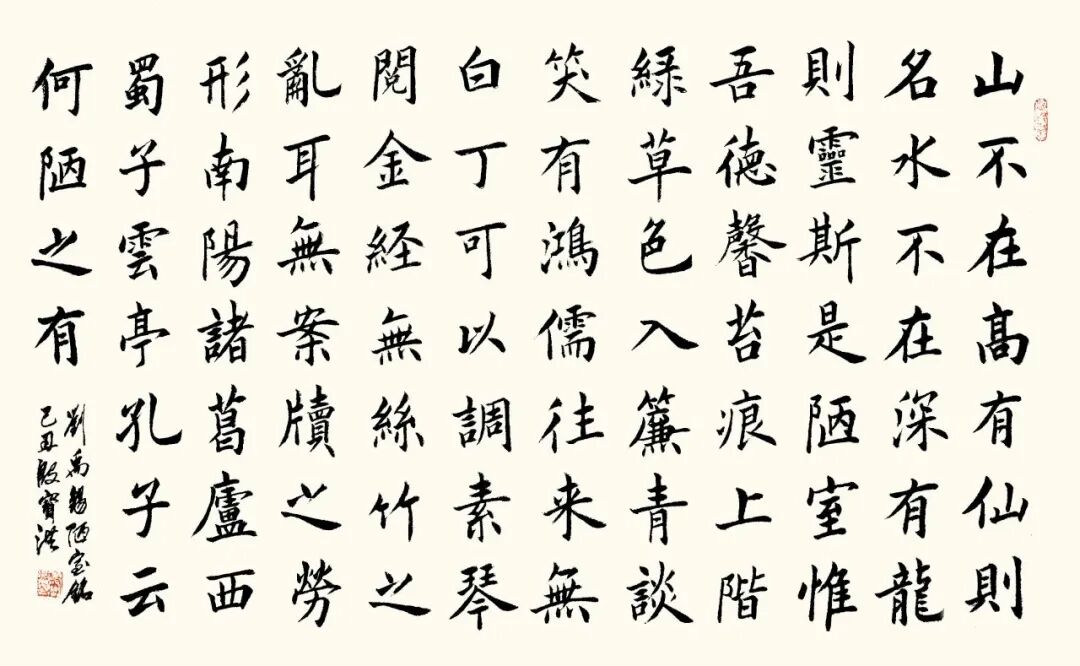 山不在高有仙則
名水不在深有龍
則靈斯是陋室惟
吾德馨苔痕上階
緑草色入簾青談
笑有鴻儒往来無
白丁可以調素琴
閲金経無絲竹之
亂耳無案牘之勞
形南陽諸葛廬西
蜀子雲亭孔子云
何陋之有
劉禹錫陋室銘
己丑殷寶洪